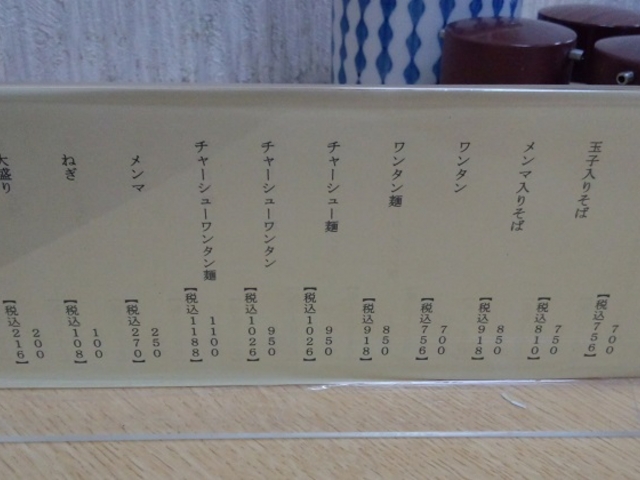 700
【税込756】
玉子入りそば
750
【税込810】
メンマ入りそば
850
【税込918】
ワンタン
700
【税込756】
ワンタン麺
850
【税込918】
チャーシュー麺
950
【税込1026】
チャーシューワンタン
950
【税込1026】
チャーシューワンタン麺
1100
【税込1188】
メンマ
250
【税込270】
ねぎ
100
【税込108】
大盛り
200
【税込216】